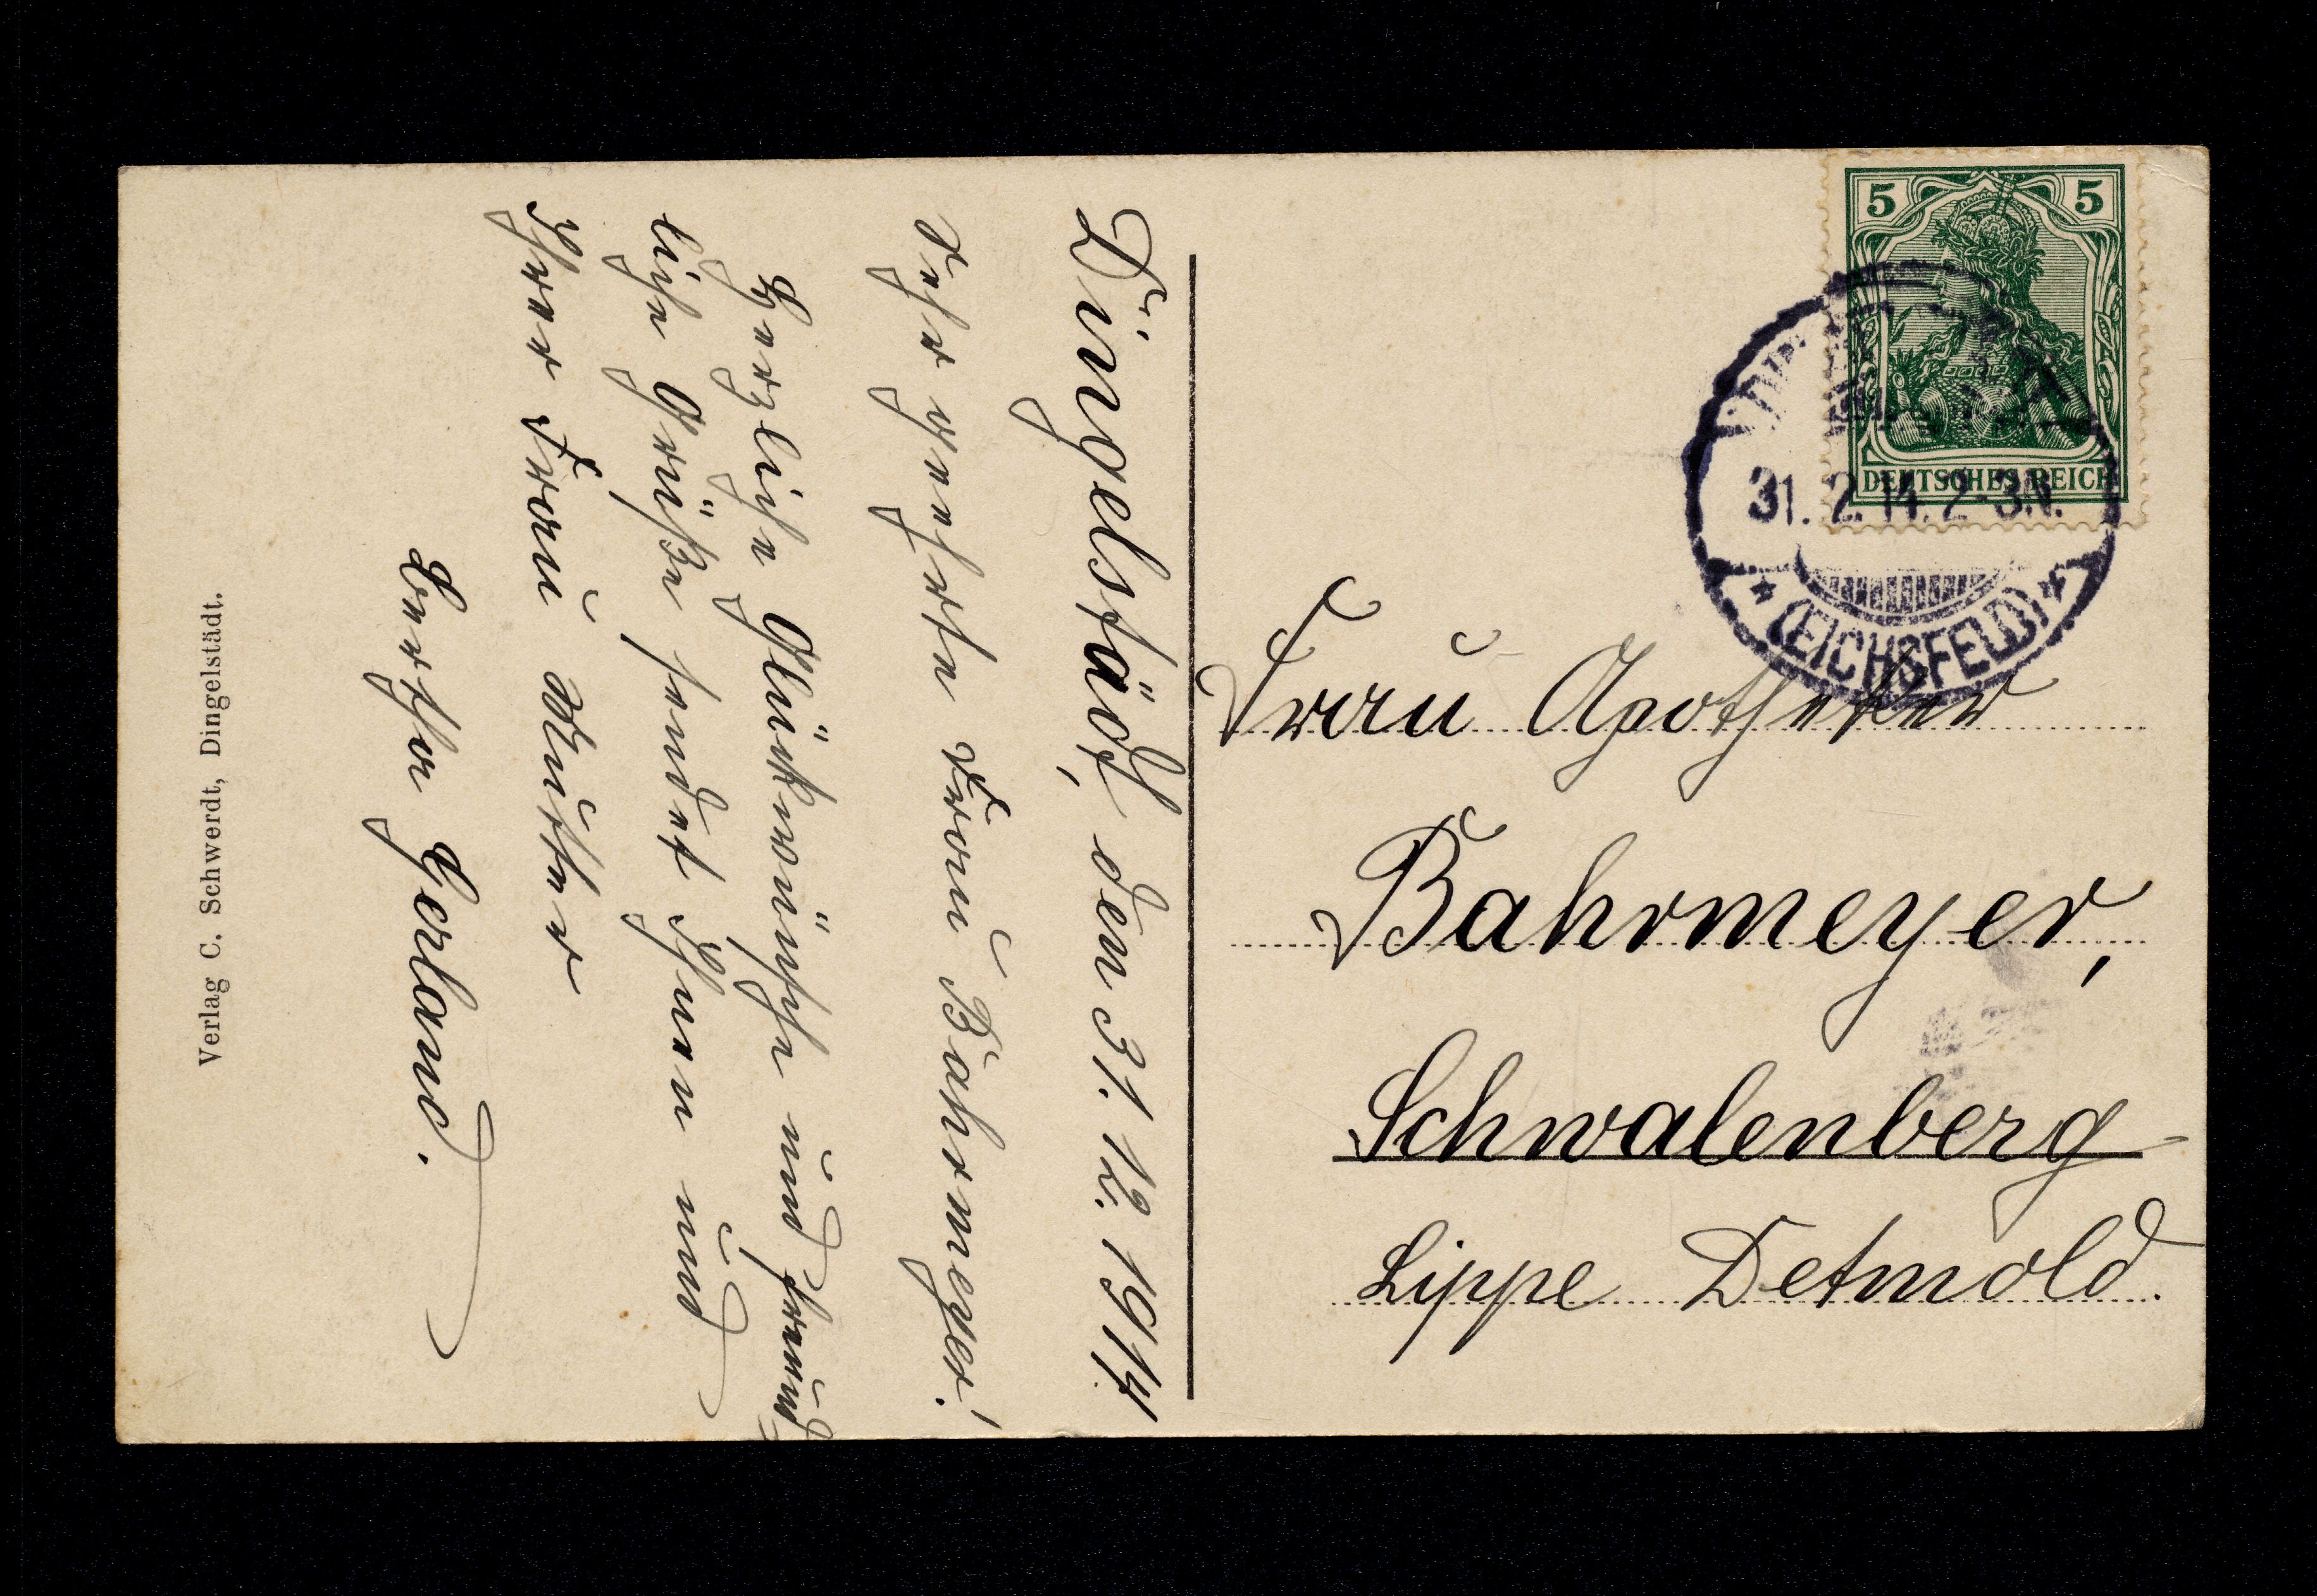 Dingelstädt, den 31. 12. 1914
Sehr geehrte Frau Bahrmeyer!
Herzliche Glückwünsche und freund-
liche Grüße sendet Ihnen und
Ihrer Frau Mutter
Bertha Gerland.
Verlag C. Schwerdt, Dingelstädt.
5 5
DEUTSCHES REICH
31. 12. 14. 2-3N.
* (EICHSFELD) *
Frau Apotheker
Bahrmeyer,
Schwalenberg
Lippe Detmold.